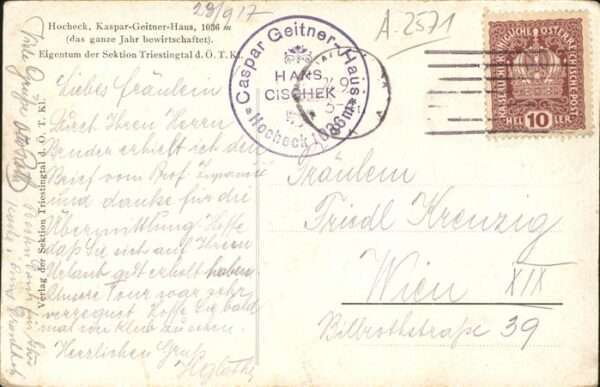 28/9 17
A.2571
Hocheck, Kaspar-Geitner-Haus, 1036 m
(das ganze Jahr bewirtschaftet).
Eigentum der Sektion Triestingtal d. Ö. T. Kl.
Caspar Geitner-Haus
HANS
CISCHEK
Hocheck 1036 m
KAISERLICHE KÖNIGLICHE ÖSTERREICHISCHE POST
HELLER 10
Liebes Fräulein
Durch Ihren Herrn
Bruder erhielt ich den
Brief vom Prof.
und danke für die
Übermittlung. Hoffe
daß Sie sich auf Ihrem
Urlaub gut erholt haben.
Unsere Tour war sehr
vergnügt. Hoffe Sie bald
mal von
Herzlichen Gruß
Fräulein
Friedl Kreuzig
Wien XIX
Billrothstraße 39
Verlag der Sektion Triestingtal d. Ö. T. Kl.